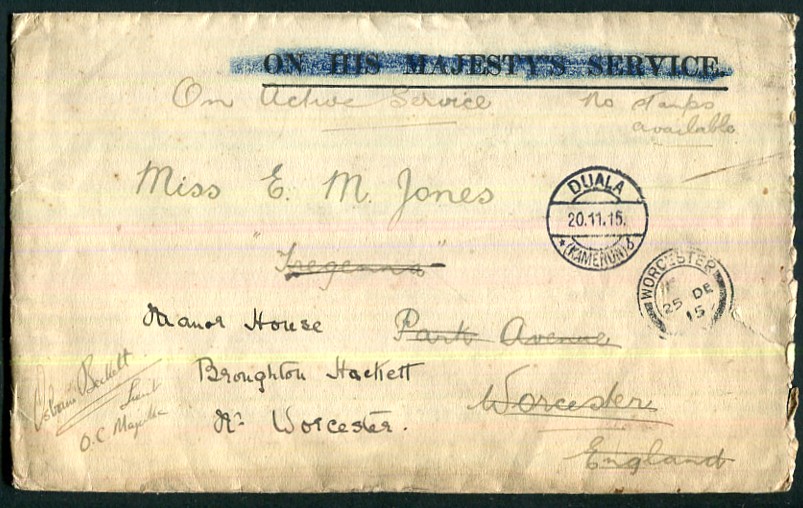 ON HIS MAJESTY'S SERVICE.
On Active Service
No stamps
available
Miss E. M. Jones
DUALA
20.11.15.
(KAMERUN) b
"Tregenna"
WORCESTER
25 DE
15
Manor House
Park Avenue
Broughton Hackett
Nr Worcester.
Worcester
England
Lieut
O.C